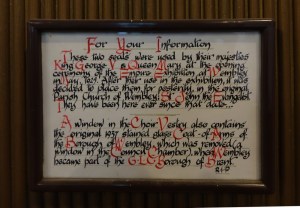 For Your Information
These two seats were used by their majesties
King George V & Queen Mary at the opening
ceremony of the Empire Exhibition at Wembley
in May, 1924. After their use in the exhibition, it was
decided to place them for posterity, in the original
Parish Church of Wembley, St. John the Evangelist.
They have been here ever since that date...
A window in the Choir Vestry also contains
the original 1937 stained glass Coat-of-Arms of
the Borough of Wembley, which was removed (a
window in the Council Chamber), when Wembley
became part of the G.L.C. Borough of Brent.